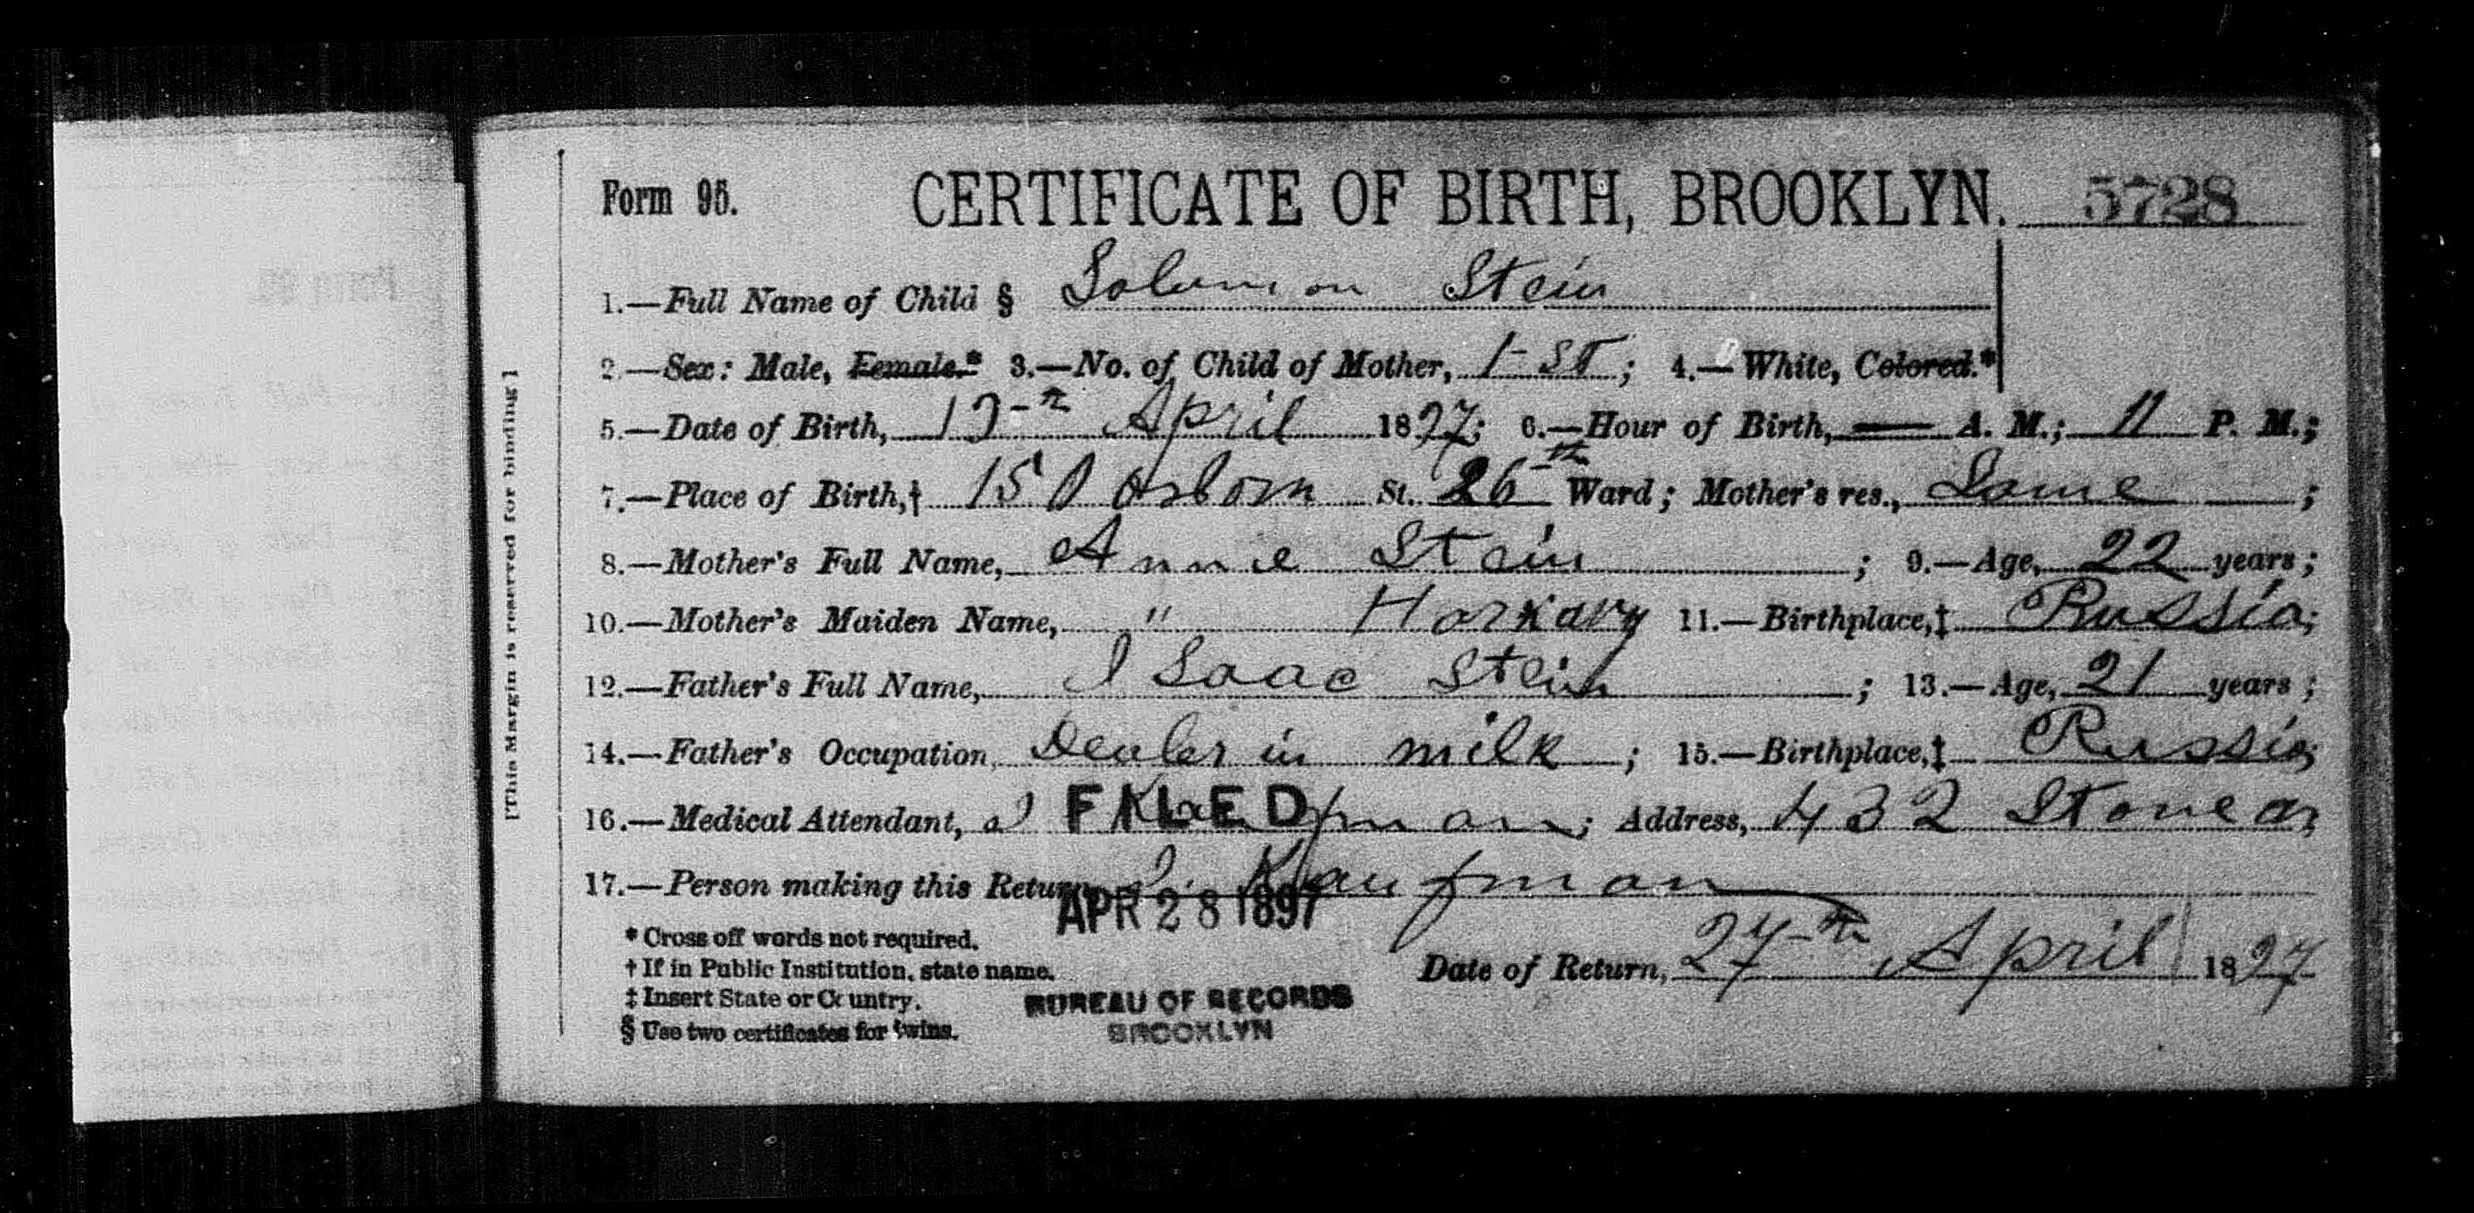 Form 95. CERTIFICATE OF BIRTH, BROOKLYN. 5728
1.—Full Name of Child § Solomon Stein
2.—Sex: Male, Female.* 3.—No. of Child of Mother, 1-st; 4.—White, Colored.*
5.—Date of Birth, April 1897; 6.—Hour of Birth, — A. M.; 11 P. M.;
7.—Place of Birth,† 150 Osborn St. 26th Ward; Mother's res., Same;
8.—Mother's Full Name, Annie Stein; 9.—Age, 22 years;
10.—Mother's Maiden Name, " Harkavy 11.—Birthplace,‡ Russia;
12.—Father's Full Name, Isaac Stein; 13.—Age, 21 years;
14.—Father's Occupation, Dealer in milk; 15.—Birthplace,‡ Russia;
16.—Medical Attendant, I Kaufman; Address, 432 Stone av
FILED
17.—Person making this Return, I. Kaufman
APR 28 1897
* Cross off words not required.
† If in Public Institution, state name.
Date of Return, 27-th April 1897
‡ Insert State or Country.
BUREAU OF RECORDS
§ Use two certificates for twins.
BROOKLYN
[This Margin is reserved for binding]